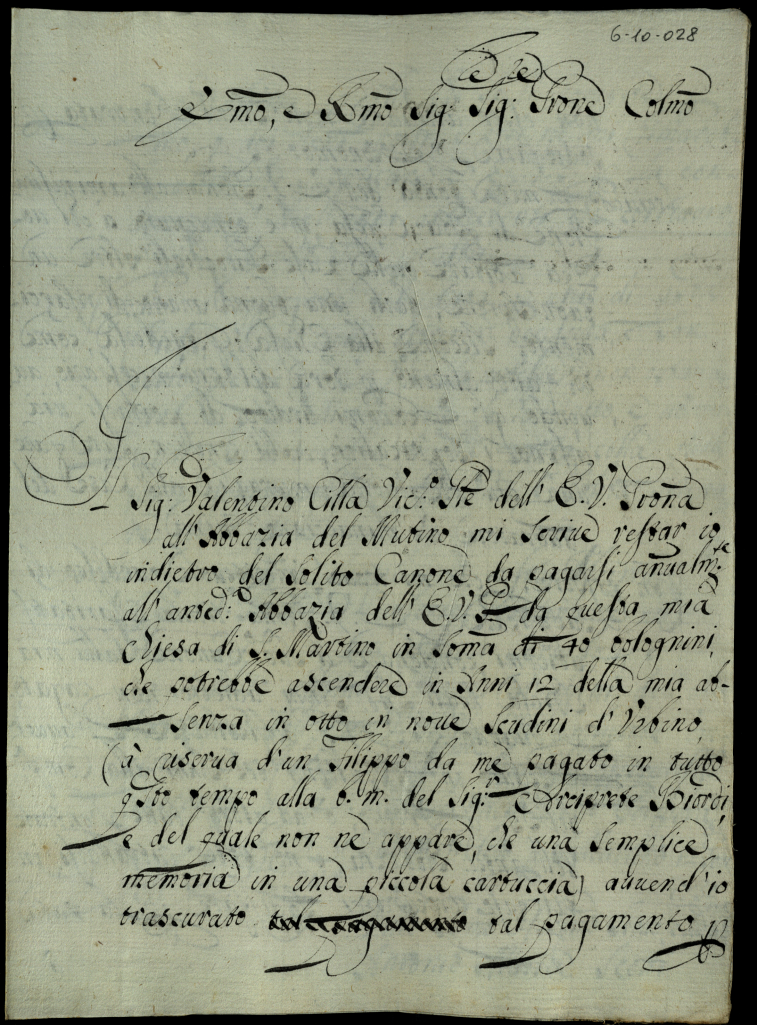 6-10-028
Emo, e Rmo Sig: Sig: Prone Colmo
Il Sig: Valentino Cilla Vic.o Gte dell' E. V. Prona
all' Abbazia del Mutino mi scrive restar io
indietro del solito Canone da pagarsi anualm.te
all' anted.a Abbazia dell' E. V. da questa mia
Chiesa di S. Martino in soma di 40 bolognini,
che potrebbe ascendere in Anni 12 della mia ab-
senza in otto in nove Scudini d'Urbino,
(à riserva d'un Filippo da me pagato in tutto
qsto tempo alla b. m. del Sig.r Arciprete Biordi,
e del quale non ne appare, che una semplice
memoria in una piccola cartuccia) avvend' io
trascurato tal pagamento tal pagamento